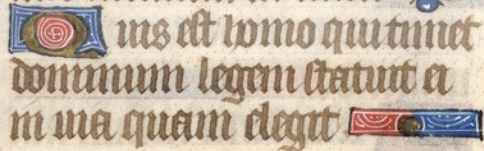 Quis est homo qui timet
dominum legem statuit ei
in via quam elegit